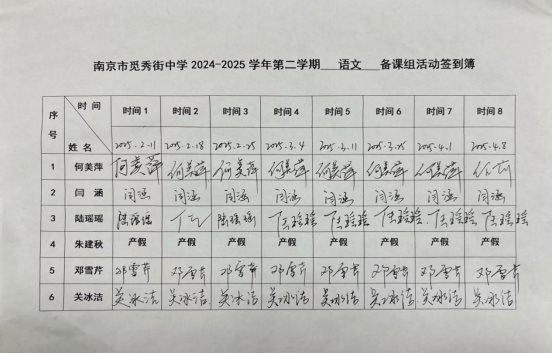 南京市觅秀街中学 2024-2025 学年第二学期 语文 备课组活动签到簿
序号 时间 姓名 时间 1 时间 2 时间 3 时间 4 时间 5 时间 6 时间 7 时间 8
2025.2.11 2025.2.18 2025.2.25 2025.3.4 2025.3.11 2025.3.25 2025.4.1 2025.4.8
1 何美萍 何美萍 何美萍 何美萍 何美萍 何美萍 何美萍 何美萍
2 闫涵 闫涵 闫涵 闫涵 闫涵 闫涵 闫涵 闫涵 闫涵
3 陆瑶瑶 陆瑶瑶 陆瑶瑶 陆瑶瑶 陆瑶瑶 陆瑶瑶 陆瑶瑶 陆瑶瑶
4 朱建秋 产假 产假 产假 产假 产假 产假 产假 产假
5 邓雪芹 邓雪芹 邓雪芹 邓雪芹 邓雪芹 邓雪芹 邓雪芹 邓雪芹 邓雪芹
6 关冰洁 关冰洁 关冰洁 关冰洁 关冰洁 关冰洁 关冰洁 关冰洁 关冰洁